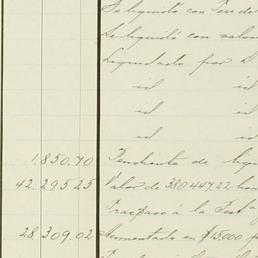 Se liquidó con
Se liquidó con valor
Liquidado por D.
id id
id id
id id
1,850.70 Pendiente de liq
42.295.25 Valor de 380.447.22
Traspaso á la Test
28.309.02 Aumentada en $15.000 p